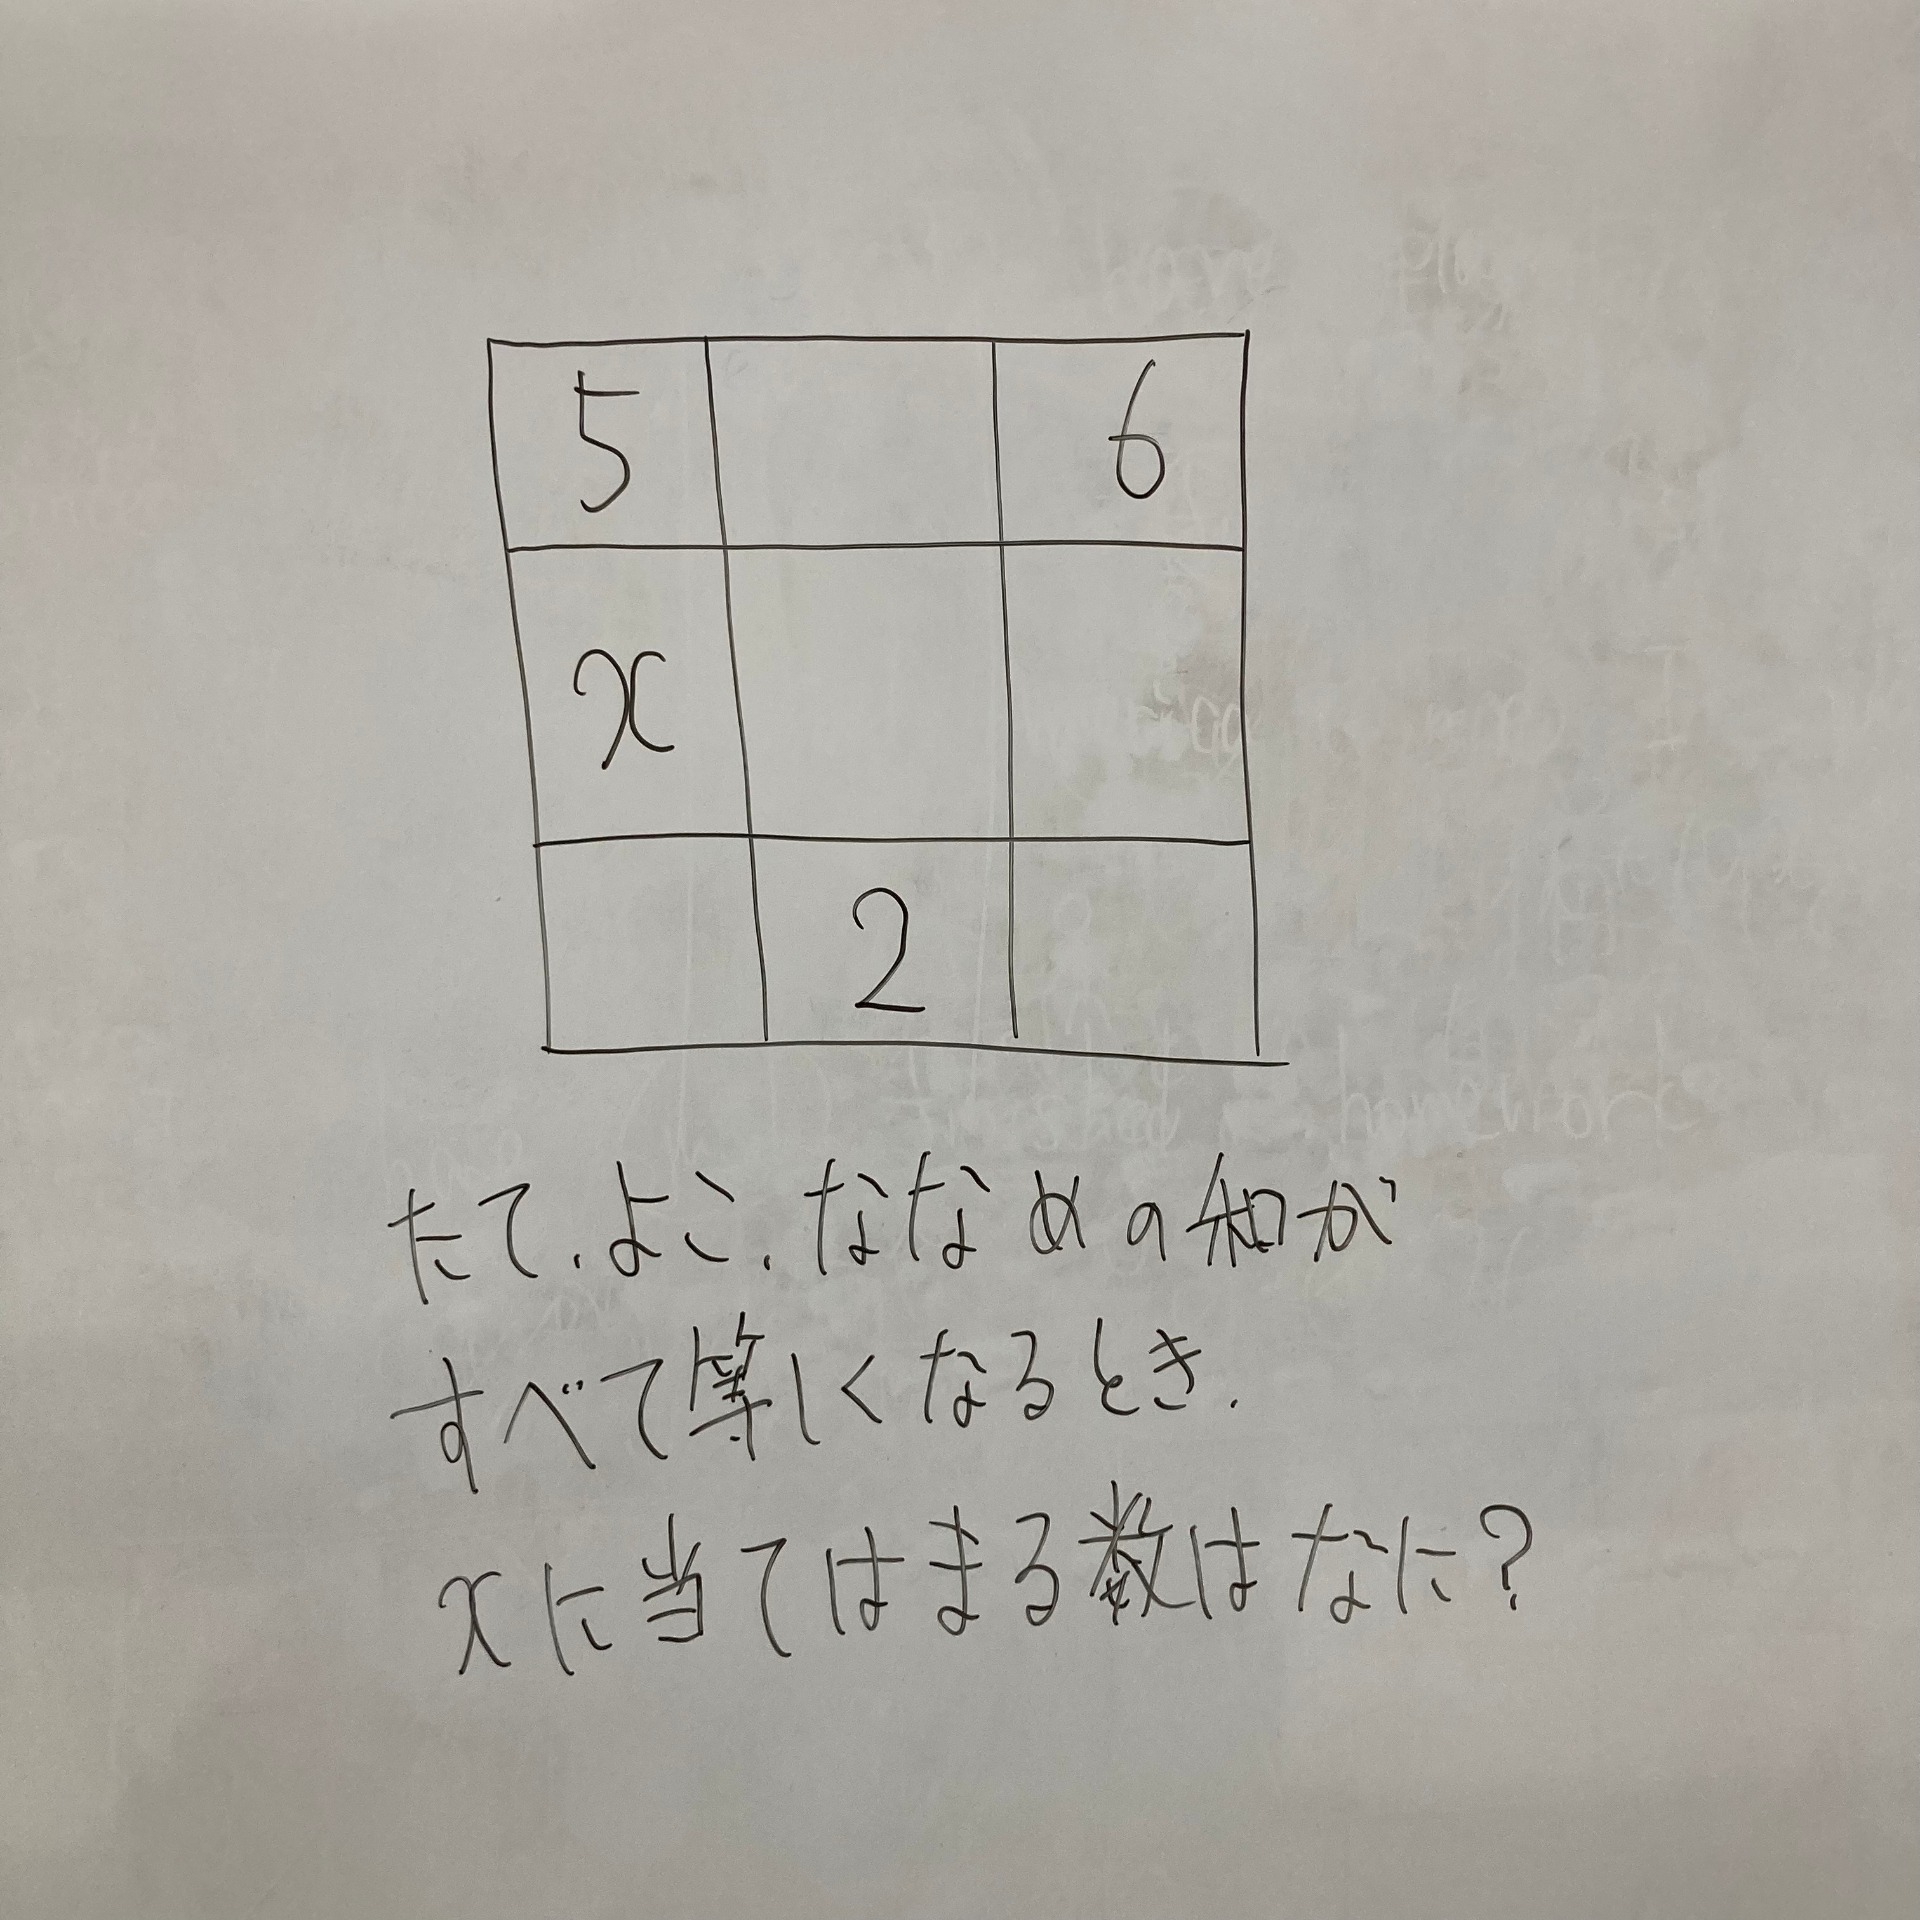 5 6
x
2
たて、よこ、ななめの和が
すべて等しくなるとき、
xに当てはまる数はなに？